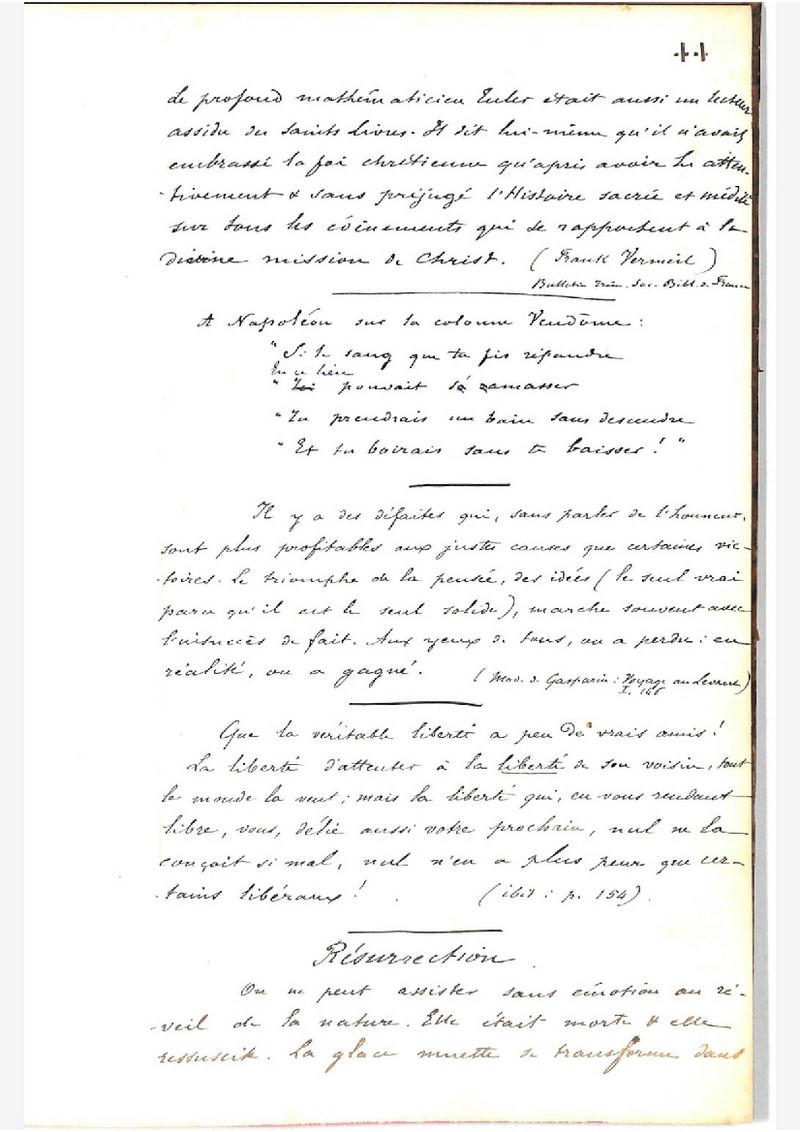 44
Le profond mathématicien Euler était aussi un lecteur
assidu des Saints Livres. Il dit lui-même qu'il n'avait
embrassé la foi chrétienne qu'après avoir lu atten-
-tivement & sans préjugé l'Histoire sacrée et médité
sur tous les événements qui se rapportent à la
divine mission de Christ. (Frank Vermeil)
Bulletin trim. Soc. Bibl. d. France
A Napoléon sur la colonne Vendôme :
"Si le sang que tu fis répandre
En ce lieu
" pouvait se ramasser
"Tu prendrais un bain sans descendre
"Et tu boirais sans te baisser ! "
Il y a des défaites qui, sans parler de l'honneur,
sont plus profitables aux justes causes que certaines vic-
-toires. Le triomphe de la pensée, des idées (le seul vrai
parce qu'il est le seul solide), marche souvent avec
l'insuccès de fait. Aux yeux de tous, on a perdu : en
réalité, on a gagné.
(Mad. d. Gasparin : Voyage au Levant)
I. 148
Que la véritable liberté a peu de vrais amis !
La liberté d'attenter à la liberté de son voisin, tout
le monde la veut ; mais la liberté qui, en vous rendant
libre, vous, délie aussi votre prochain, nul ne la
conçoit si mal, nul n'en a plus peur que cer-
-tains libéraux ! (ibid : p. 154).
Résurrection
On ne peut assister sans émotion au ré-
-veil de la nature. Elle était morte & elle
ressuscite. La glace muette se transforme dans